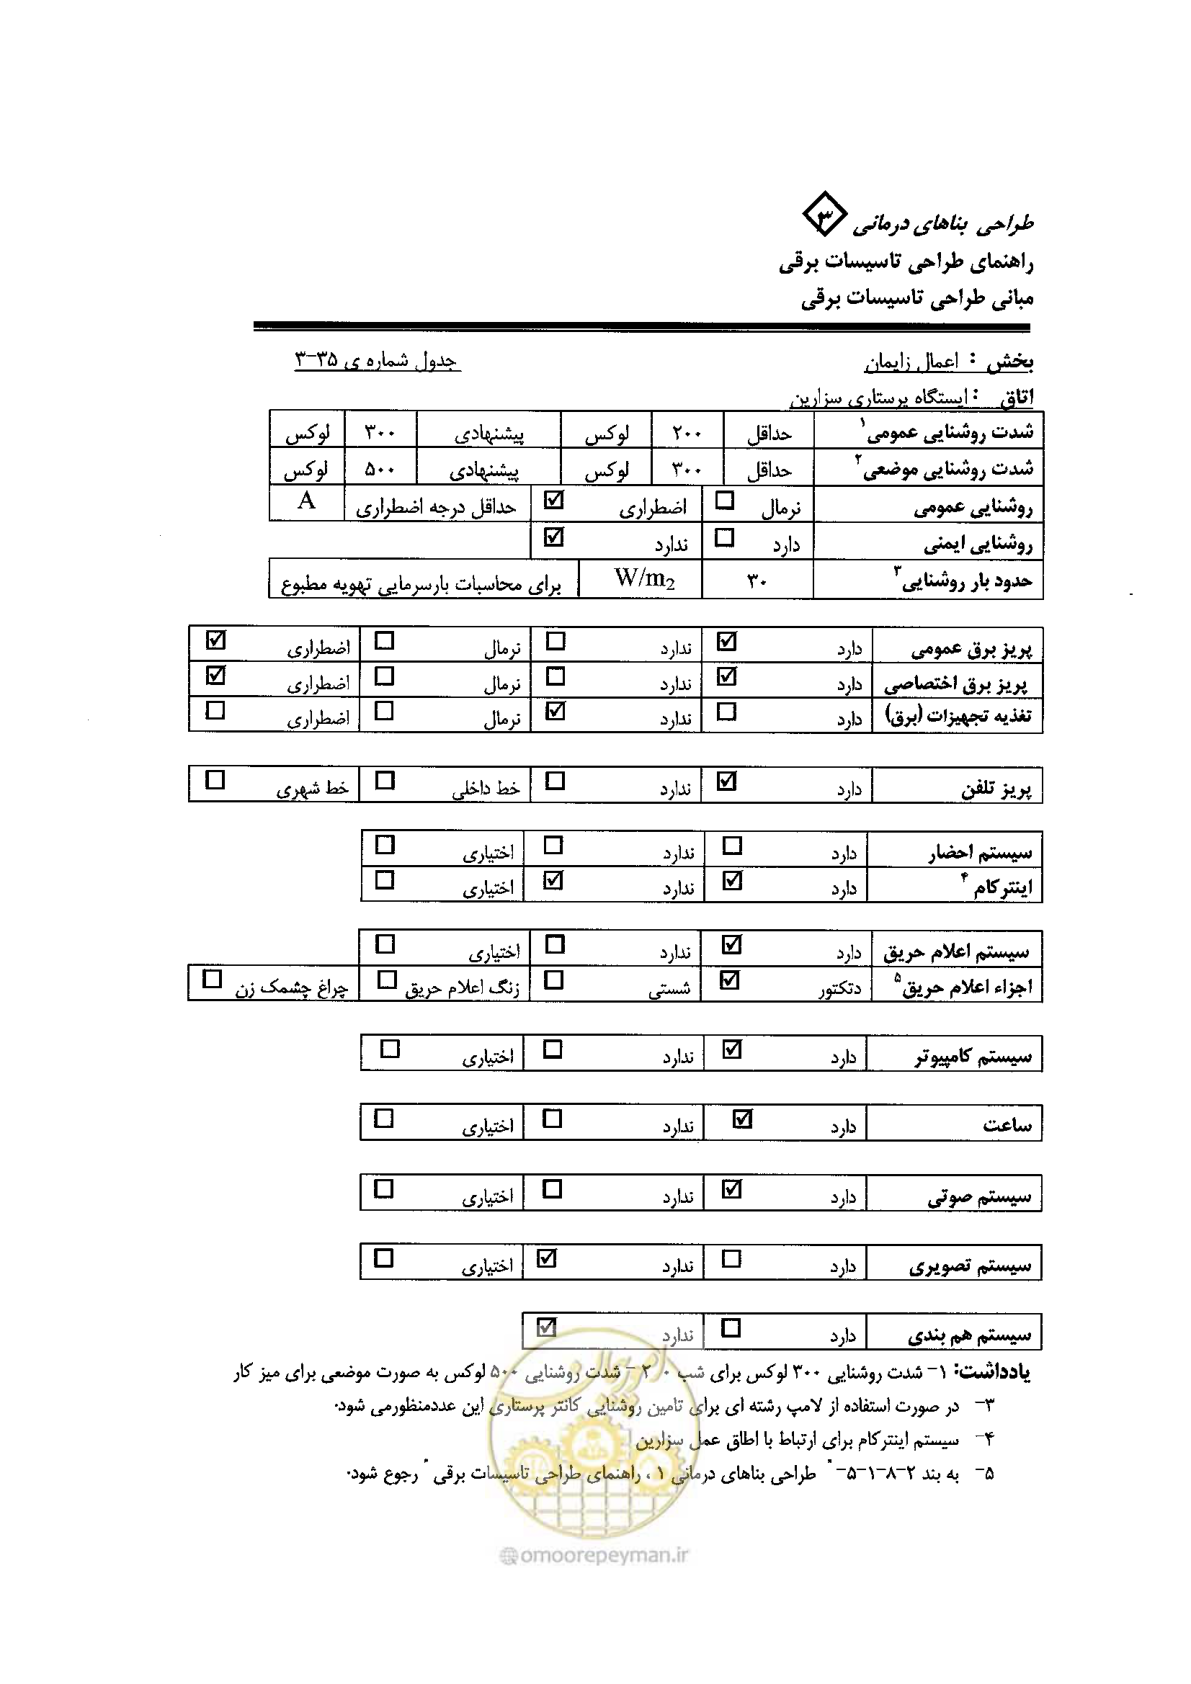 طراحی بناهای درمانی ۳
راهنمای طراحی تاسیسات برقی
مبانی طراحی تاسیسات برقی
بخش : اعمال زایمان جدول شماره ی ۳۵-۳
اتاق : ایستگاه پرستاری سزارین
شدت روشنایی عمومی۱ حداقل ۲۰۰ لوکس پیشنهادی ۳۰۰ لوکس
شدت روشنایی موضعی۲ حداقل ۳۰۰ لوکس پیشنهادی ۵۰۰ لوکس
روشنایی عمومی نرمال ☐ اضطراری ☑ حداقل درجه اضطراری A
روشنایی ایمنی دارد ☐ ندارد ☑
حدود بار روشنایی۳ ۳۰ W/m2 برای محاسبات بارسرمایی تهویه مطبوع
پریز برق عمومی دارد ☑ ندارد ☐ نرمال ☐ اضطراری ☑
پریز برق اختصاصی دارد ☑ ندارد ☐ نرمال ☐ اضطراری ☑
تغذیه تجهیزات (برق) دارد ☐ ندارد ☑ نرمال ☐ اضطراری ☐
پریز تلفن دارد ☑ ندارد ☐ خط داخلی ☐ خط شهری ☐
سیستم احضار دارد ☐ ندارد ☐ اختیاری ☐
اینترکام ۴ دارد ☑ ندارد ☑ اختیاری ☐
سیستم اعلام حریق دارد ☑ ندارد ☐ اختیاری ☐
اجزاء اعلام حریق۵ دتکتور ☑ شستی ☐ زنگ اعلام حریق ☐ چراغ چشمک زن ☐
سیستم کامپیوتر دارد ☑ ندارد ☐ اختیاری ☐
ساعت دارد ☑ ندارد ☐ اختیاری ☐
سیستم صوتی دارد ☑ ندارد ☐ اختیاری ☐
سیستم تصویری دارد ☐ ندارد ☑ اختیاری ☐
سیستم هم بندی دارد ☐ ندارد ☑
یادداشت: ۱- شدت روشنایی ۳۰۰ لوکس برای شب . ۲- شدت روشنایی ۵۰۰ لوکس به صورت موضعی برای میز کار
۳- در صورت استفاده از لامپ رشته ای برای تامین روشنایی کانتر پرستاری این عددمنظورمی شود.
۴- سیستم اینترکام برای ارتباط با اطاق عمل سزارین
۵- به بند ۲-۸-۱-۵- " طراحی بناهای درمانی ۱ ، راهنمای طراحی تاسیسات برقی " رجوع شود.
@omoorepeyman.ir